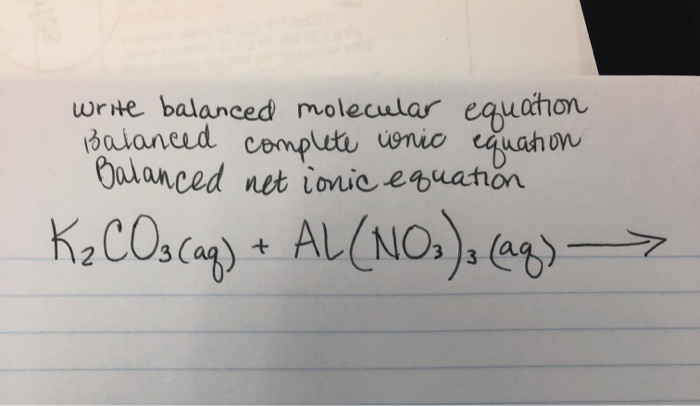 write balanced molecular equation
Balanced complete ionic equation
Balanced net ionic equation
K₂CO₃(aq) + Al(NO₃)₃(aq) ⟶